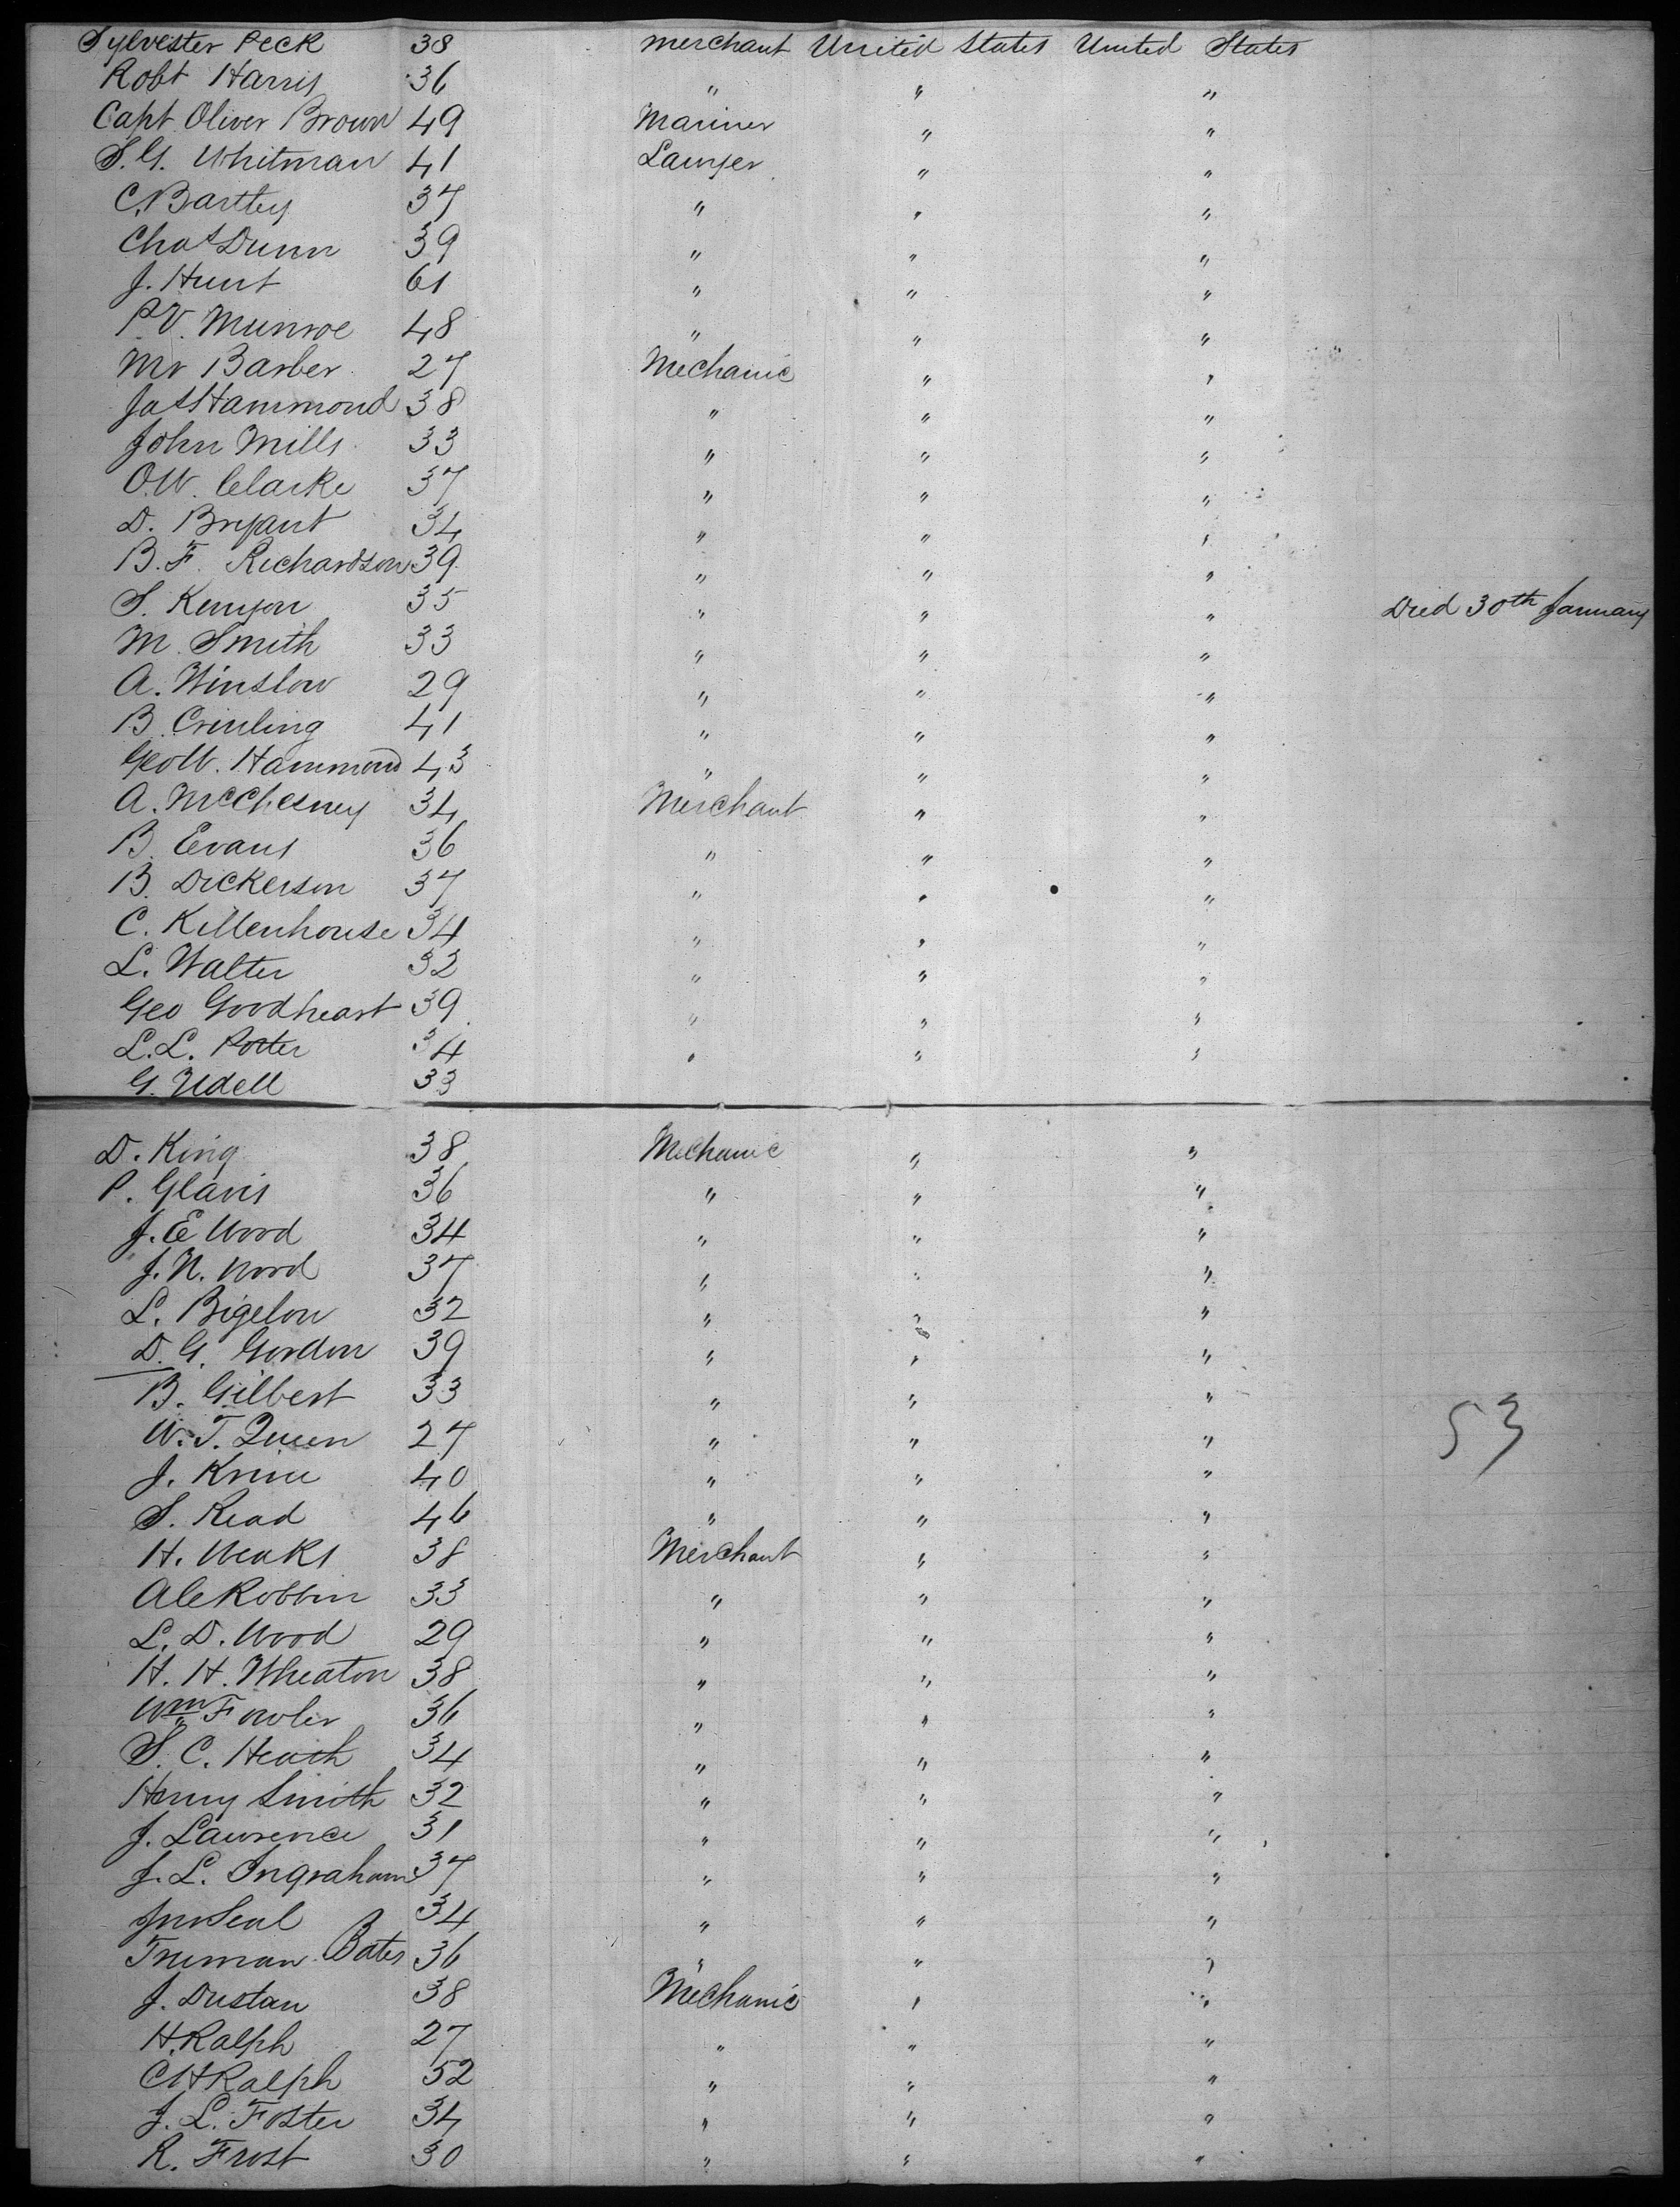 Sylvester Peck 38 merchant United States United States
Robt Harris 36 " " "
Capt Oliver Brown 49 Mariner " "
S. G. Whitman 41 Lawyer " "
C, Bartley 37 " " "
Chas Dunn 39 " " "
J. Hunt 61 " " "
P V. Munroe 48 " " "
Mr Barber 27 Mechanic " "
Jas Hammond 38 " " "
John Mills 33 " " "
O. W. Clarke 37 " " "
D. Bryant 34 " " "
B. F. Richardson 39 " " "
S. Kenyon 35 " " " Died 30th January
M. Smith 33 " " "
A. Winslow 29 " " "
B. Crinling 41 " " "
Geo W. Hammond 43 " " "
A. McChesney 34 Merchant " "
B. Evans 36 " " "
B. Dickerson 37 " " "
C. Killenhouse 34 " " "
L. Walter 32 " " "
Geo Goodheart 39 " " "
L. L. Porter 34 " " "
G. Udell 33
D. King 38 Mechanic " "
P. Glavis 36 " " "
J. E Wood 34 " " "
J. N. Wood 37 " " "
L. Bigelow 32 " " "
D. G. Gordon 39 " " "
B. Gilbert 33 " " "
53
W. T. Queen 27 " " "
J. 40 " " "
S. Read 46 " " "
H. Weaks 38 Merchant " "
A C Robbin 33 " " "
L. D. Wood 29 " " "
H. H. Wheaton 38 " " "
Wm Fowler 36 " " "
S. C. Heath 34 " " "
Henry Smith 32 " " "
J. Lawrence 31 " " "
J. L. Ingraham 37 " " "
Jno Seal 34 " " "
Truman Bates 36 " " "
J. Dustan 38 Mechanic " "
H. Ralph 27 " " "
C H Ralph 52 " " "
J. L. Foster 34 " " "
R. Frost 30 " " "